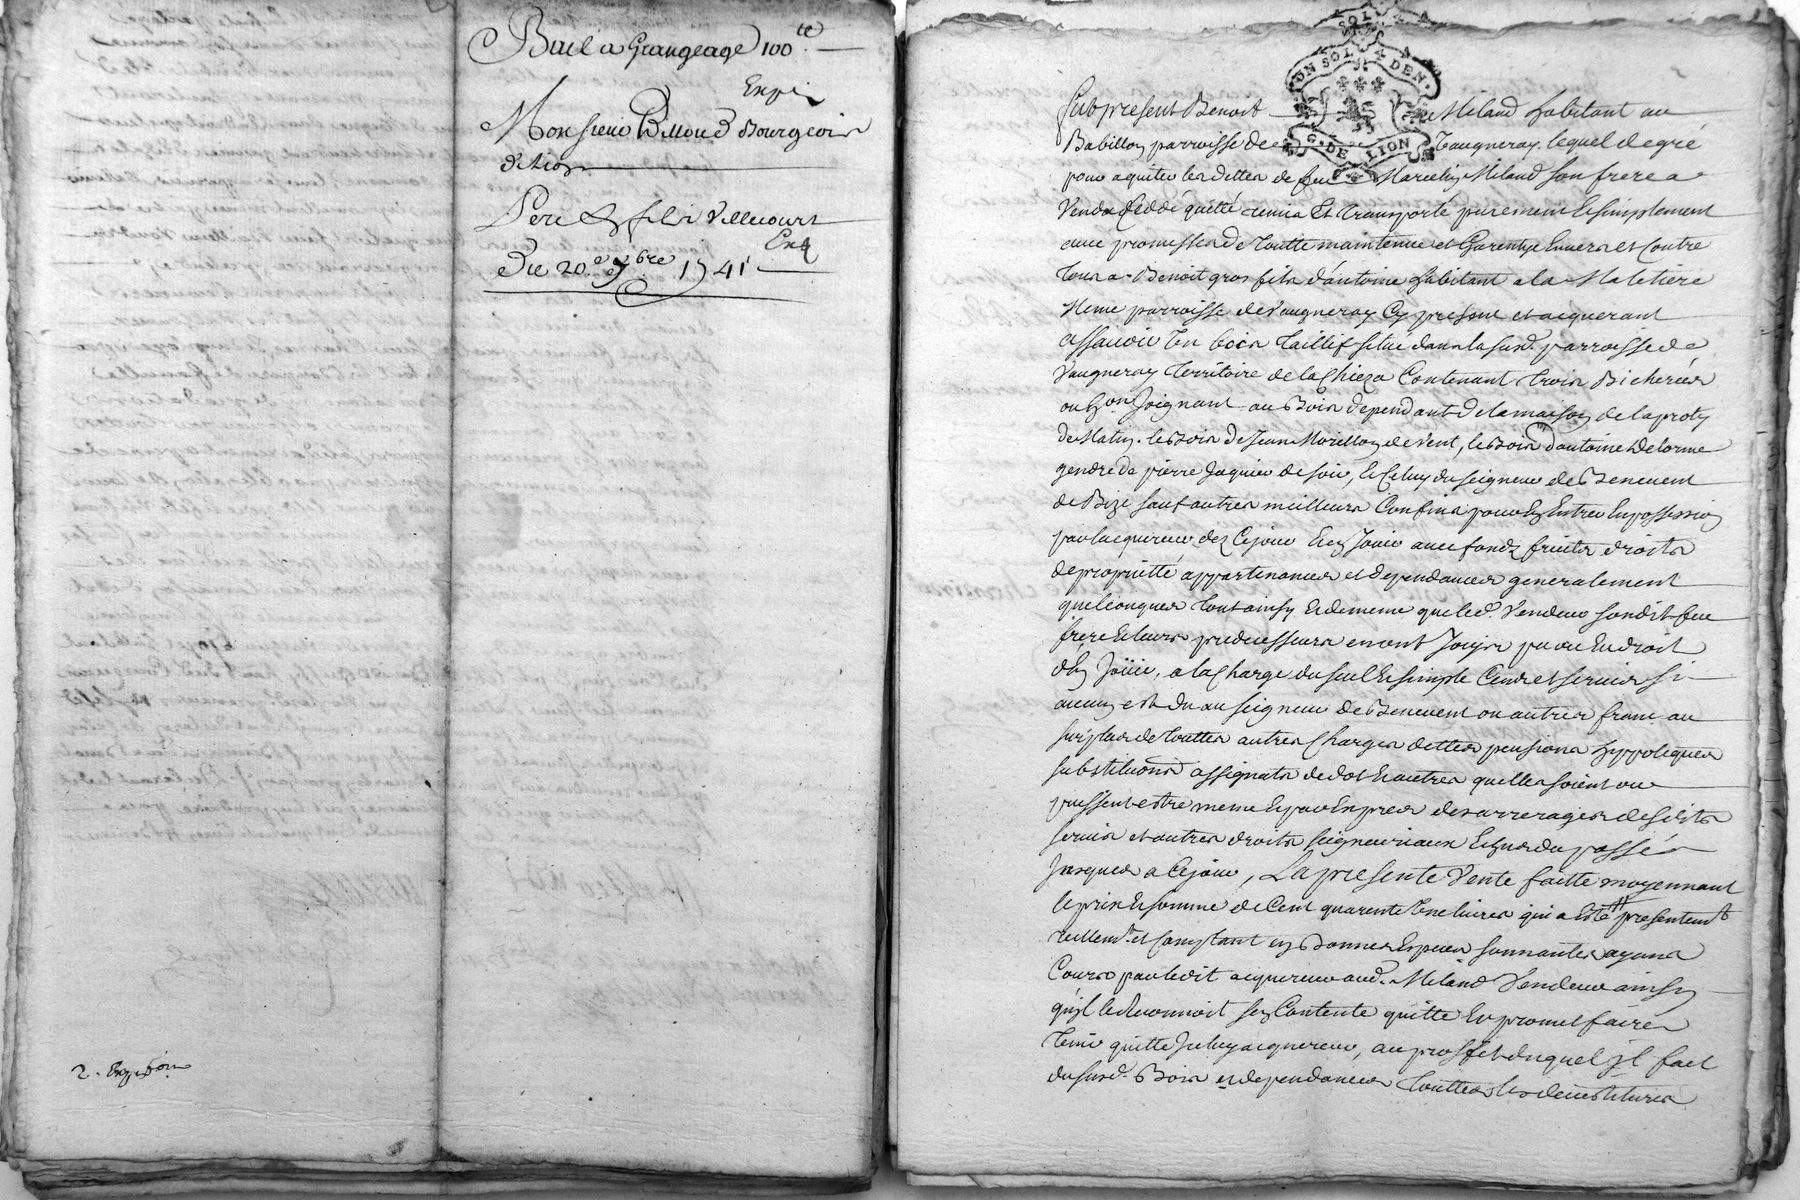 Bail a Grangeage 100 lt
Expé
Monsieur Billoud Bourgeois
de Lion
Pere & fils Villecourt
Ex
Du 20e 7bre 1741
2. Expedon
UN SOL 4 DEN.
G. DE LION
fut present Benoit Miland habitant au
Babillon parroisse de Vaugneray lequel de gré
pour aquiter les dettes de feu Marcelin Miland son frere a
Vendu Ceddé quitté remis Et transporté purement Et simplement
avec promesse de toutte maintenue et Garentye Envers et Contre
tous a Benoit gros fils d'antoine habitant a la Maletiere
Meme parroisse de Vaugneray Cy present et acquerant
assavoir Un bois taillif situé dans la susd. parroisse de
Vaugneray territoire de la Chieza Contenant trois Bicherées
ou Eon Joignant au Bois dependant de la maison de la
de Matin. le Bois de Jean Morellon de vent, le Bois d'antoine Delorme
gendre de pierre Jaquier de soir, Et Celuy du seigneur de Benevent
de Bize sauf autres meilleurs Confins pour En Entrer En possession
par lacquereur dez Cejour Et en Jouir avec fondz fruits droits
de propriétté appartenances et dependances generalement
quelconques tout ainsy et de meme que led. Vendeur sondit feu
frere Et leurs predecesseurs en ont Jouys pu ou Eu droit
d'En Joüir, a la Charge du seul Et simple Cens et servis si
aucun est du au seigneur de Benevent ou autres franc au
surplus de touttes autres Charges dettes pensions hyppoteques
substitutions assignats de dot Et autres quelles soient ou
puissent estre meme Et par Exprés des arrerages desdits
servis et autres droits seigneuriaux Echus du passé
Jusques a Cejour, La presente Vente faitte moyennant
le prix Et somme de Cent quarente Une livres qui a Esté presentemt
reellemt. et Comptant en Bonnes Especes sonnantes ayans
Cours par ledit acquereur aud. Miland Vendeur ainsy
qu'jl le Reconnoit sen Contente quitte Et promet faire
tenir quitte Jceluy acquereur, au proffit duquel jl fait
du susd. Bois et dependances touttes les devestitures